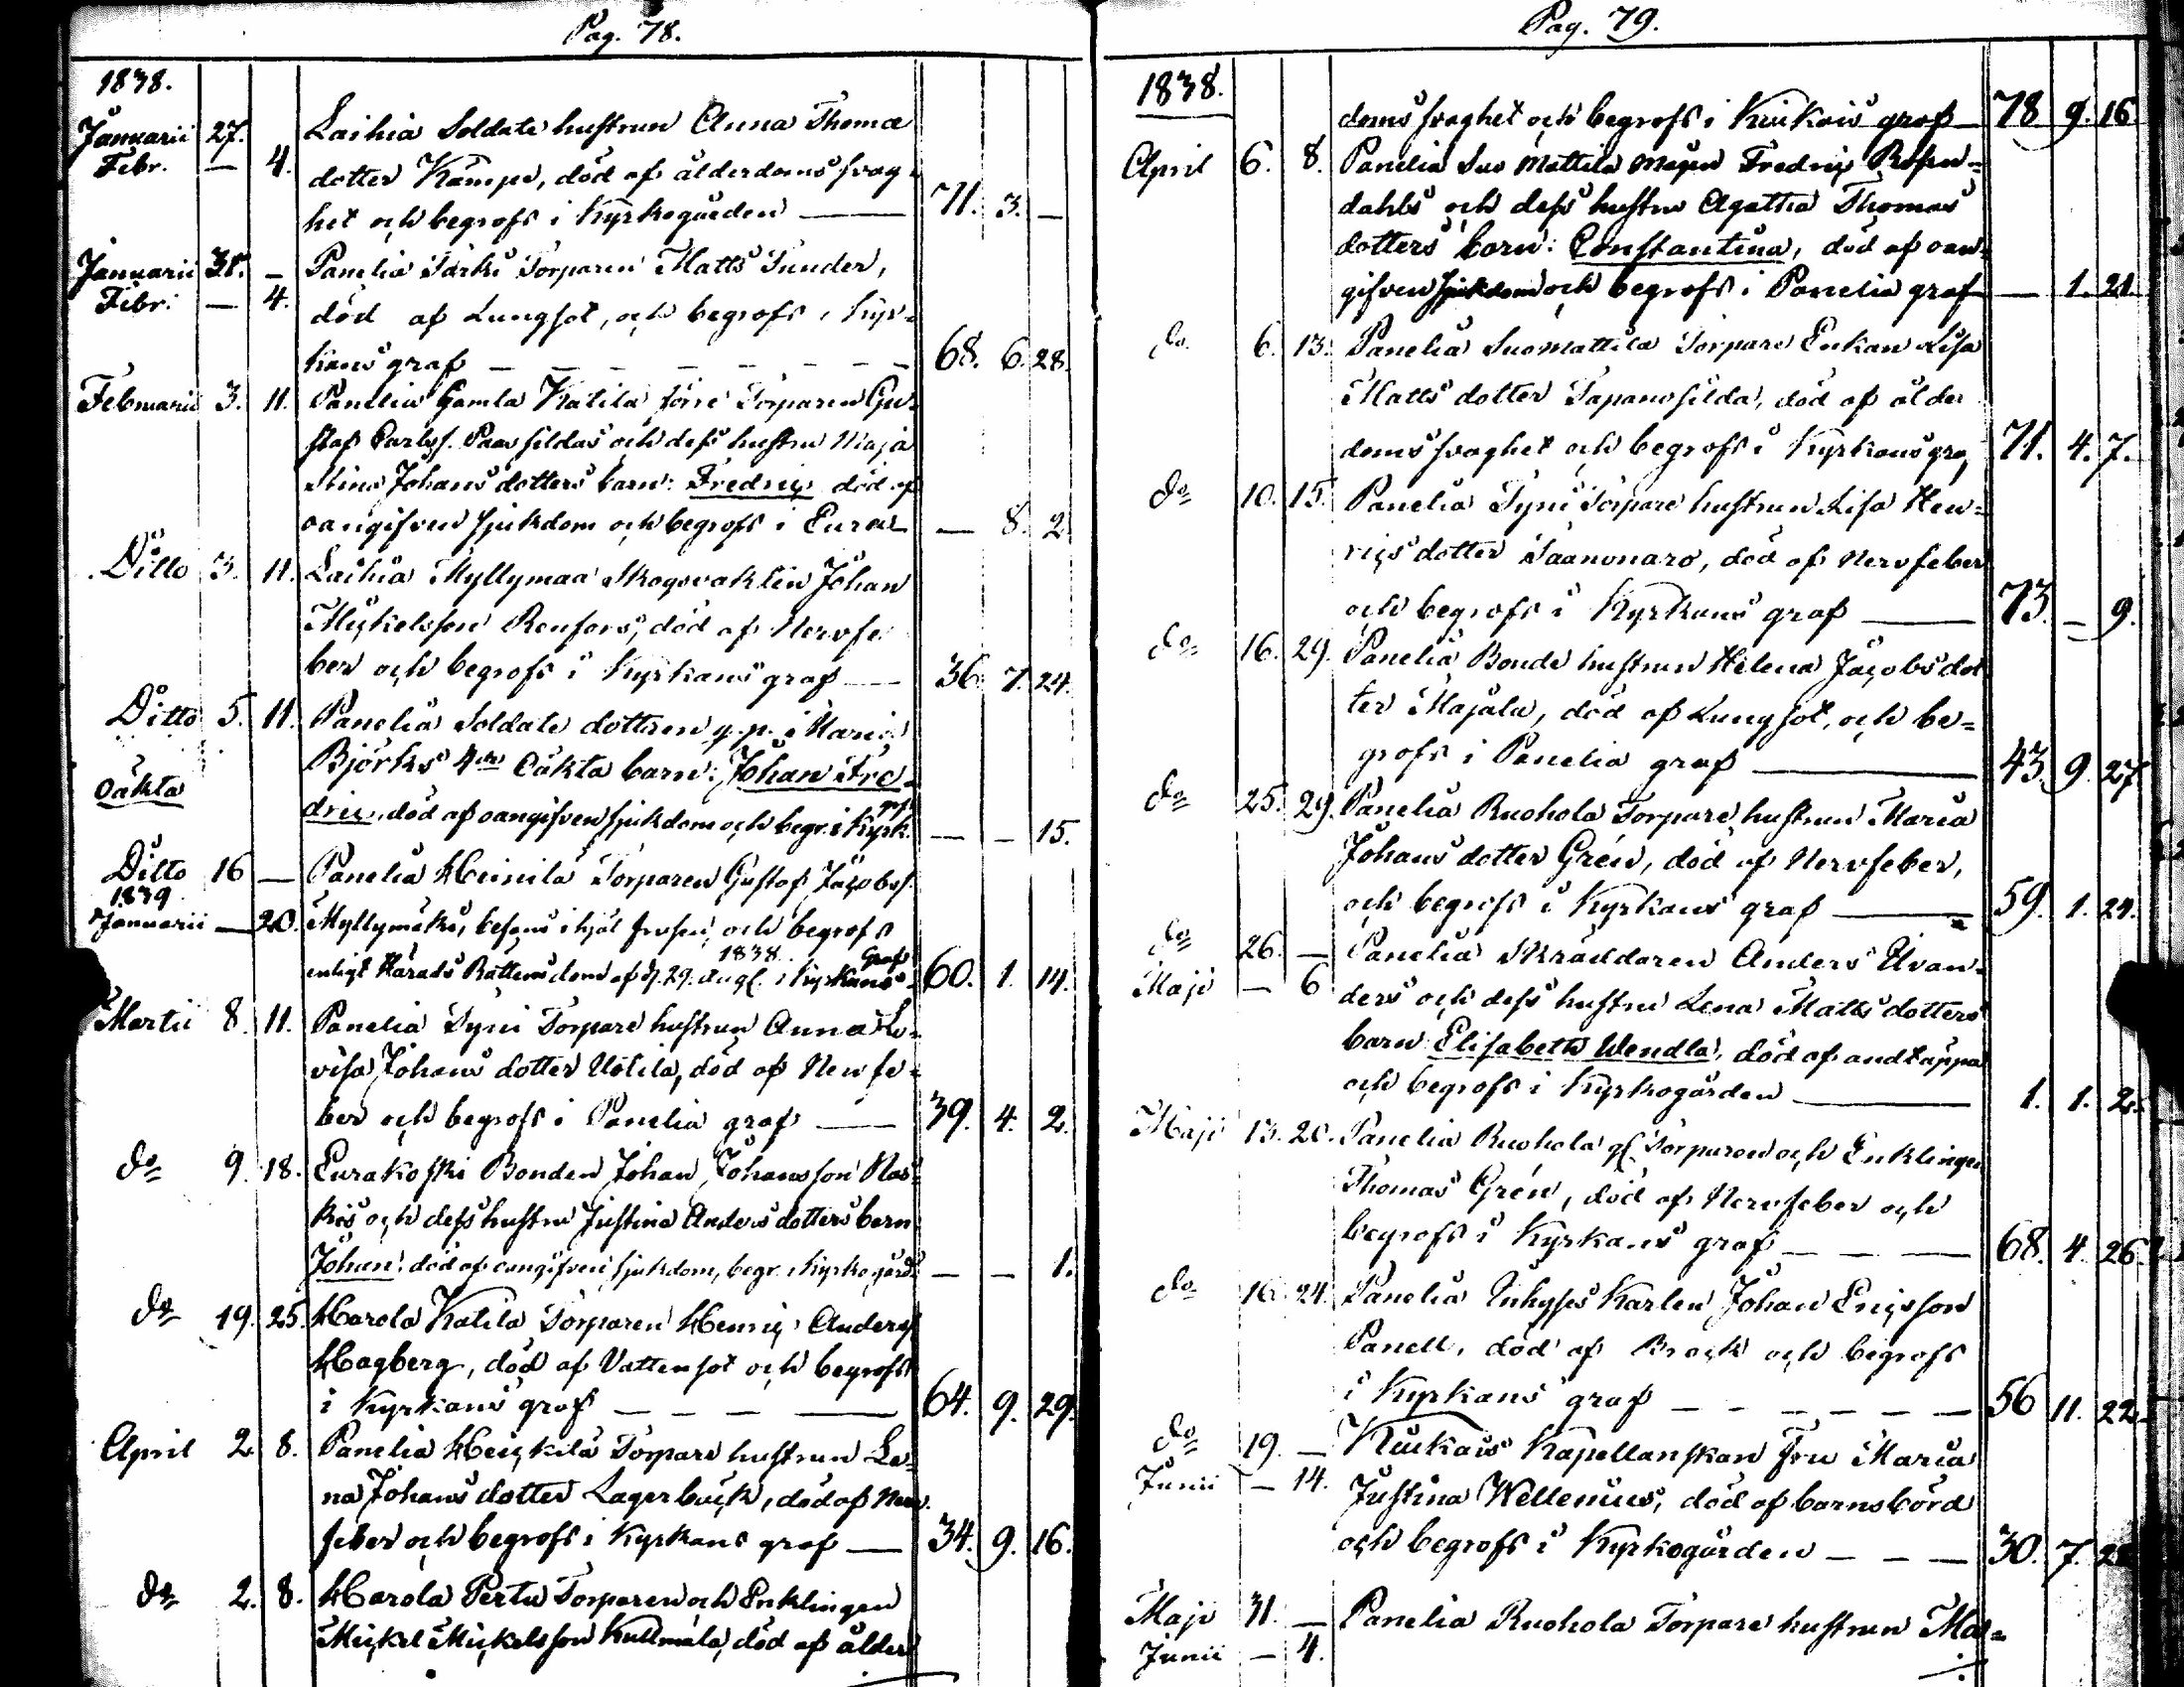 Pag. 78.
1838.
Januarii 27. Laihia Soldats hustrun Anna Thomæ
Febr. — 4. dotter Kämpe, död af ålderdoms svag-
het och begrofs i Kyrkogården — 71. 3. —
Januarii 31. — Panelia Tarki Torparen Matts Sunder,
Febr: — 4. död af Lungsot, och begrofs i Kyr-
kans graf — — — — — — — 68. 6. 28.
Februarii 3. 11. Panelia Gamla Katila förre Torparen Gu-
staf Carlss. Paavsildas och dess hustru Maja
Stina Johans dotters barn: Fredric död af
oangifven sjukdom och begrofs i Eura — 8. 2.
Ditto 3. 11. Laihia Myllymaa Skogsvakten Johan
Mickelsson Renfors, död af Nervfe
ber och begrofs i Kyrkans graf — 36. 7. 24.
Ditto 5. 11. Panelia Soldats dottren q.p. Maria
Björks 4de Oäkta barn: Johan Fre-
oäkta
dric, död af oangifven sjukdom och begr. i Kyrk. gf. — — 15.
Ditto 16 — Panelia Heinilä Torparen Gustaf Jacobss.
1839
Januarii — 20. Myllymäki, befans ihjäl frusen, och begrofs
enligt Härads Rättens dom af d. 29. Aug. 1838. i Kyrkans Graf 60. 1. 14.
Martii 8. 11. Panelia Tyni Torpare hustrun Anna Lo-
visa Johans dotter Uotila, död af Nervfe-
ber och begrofs i Panelia graf — 39. 4. 2.
do 9. 18. Eurakoski Bonden Johan Johansson Nas-
kis och dess hustru Justina Anders dotters barn
Johan: död af oangifven sjukdom, begr. i Kyrkogård. — — 1.
do 19. 25. Harola Katila Torparen Henric Anderss.
Hagberg, död af Vattensot och begrofs
i Kyrkans graf — — — — 64. 9. 29.
April 2. 8. Panelia Heickilä Torpare hustrun Le-
na Johans dotter Lagerbäck, död af Nerv-
feber och begrofs i Kyrkans graf — 34. 9. 16.
do 2. 8. Harola Pertu Torparen och Enklingen
Mickel Mickelsson Kullmala, död af ålder
Pag. 79.
1838.
doms svaghet och begrofs i Kiukais graf — 78. 9. 16
April 6. 8. Panelia Suo Mattila Majen Fredric Rosen-
dahls och dess hustru Agatha Thomas
dotters barn: Constantina, död af oan-
gifven sjukdom och begrofs i Panelia graf — 1. 21
do 6. 13. Panelia Suomattila Torpare Enkan Lisa
Matts dotter Tapanosilda, död af ålder
doms svaghet och begrofs i Kyrkans gra 71. 4. 7.
do 10. 15. Panelia Tyni Torpare hustrun Lisa Hen-
rics dotter Saanonaro, död af Nervfeber
och begrofs i Kyrkans graf — 73. — 9.
do 16. 29. Panelia Bonde hustrun Helena Jacobs dot
ter Majala, död af Lungsot, och be-
grofs i Panelia graf — 43. 9. 27
do 25. 29. Panelia Ruohola Torpare hustrun Maria
Johans dotter Grén, död af Nervfeber,
och begrofs i Kyrkans graf — 59. 1. 24.
do 26. — Panelia Skräddaren Anders Uvan-
Maji — 6 ders och dess hustru Lena Matts dotters
barn Elisabeth Wendla, död af andtäppa
och begrofs i Kyrkogården — 1. 1. 2.
Maji 13. 20. Panelia Ruohola gl. Torparen och Enklingen
Thomas Grén, död af Nervfeber och
begrofs i Kyrkans graf — — — 68. 4. 26.
do 16. 24. Panelia Inhyses Karlen Johan Ericsson
Panell, död af Brock och begrofs
i Kyrkans graf — — — — — — 56 11. 22.
do 19. — Kiukais Kapellanskan Fru Maria
Junii — 14. Justina Wellenius, död af barnsbörd
och begrofs i Kyrkogården — — — 30. 7.
Maji 31. — Panelia Ruohola Torpare hustrun Ma-
Junii — 4.